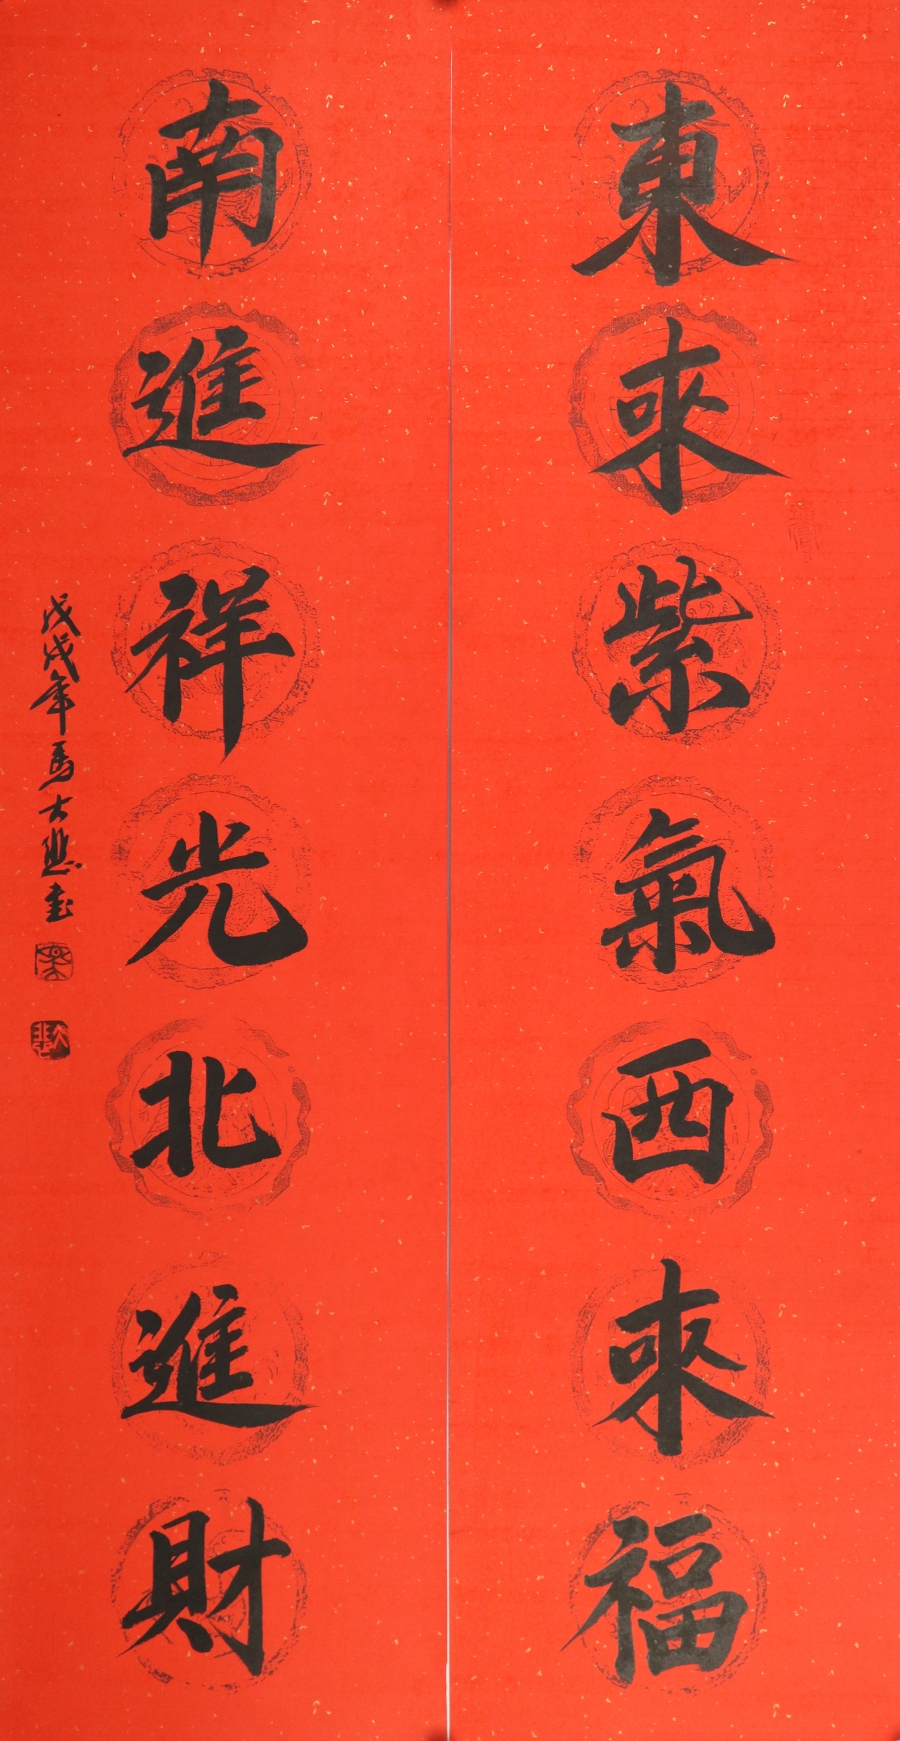 東來紫氣西來福
南進祥光北進財
戊戌年馬大